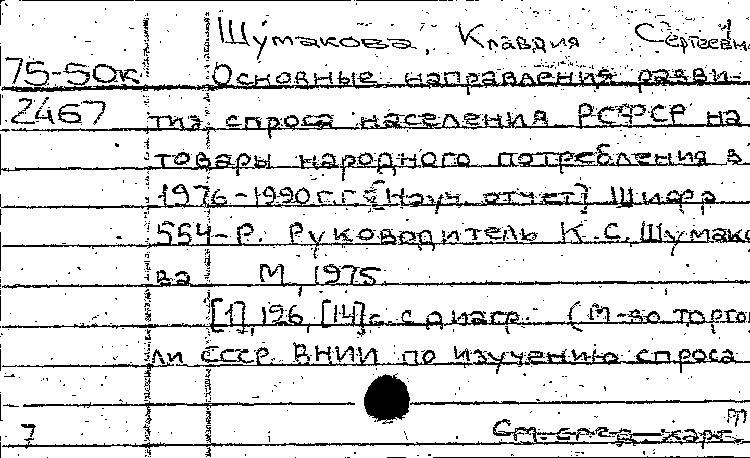 Шумакова, Клавдия Сергеевна
75-50к Основные направления разви-
2467 тия спроса населения РСФСР на
товары народного потребления в
1976-1990 г.г. [Науч. отчет] Шифр
554-Р. Руководитель К.С. Шумако
ва М, 1975.
[1], 126, [14] с. с диагр. (М-во торгов
ли СССР. ВНИИ по изучению спроса
7 См. след. карт.